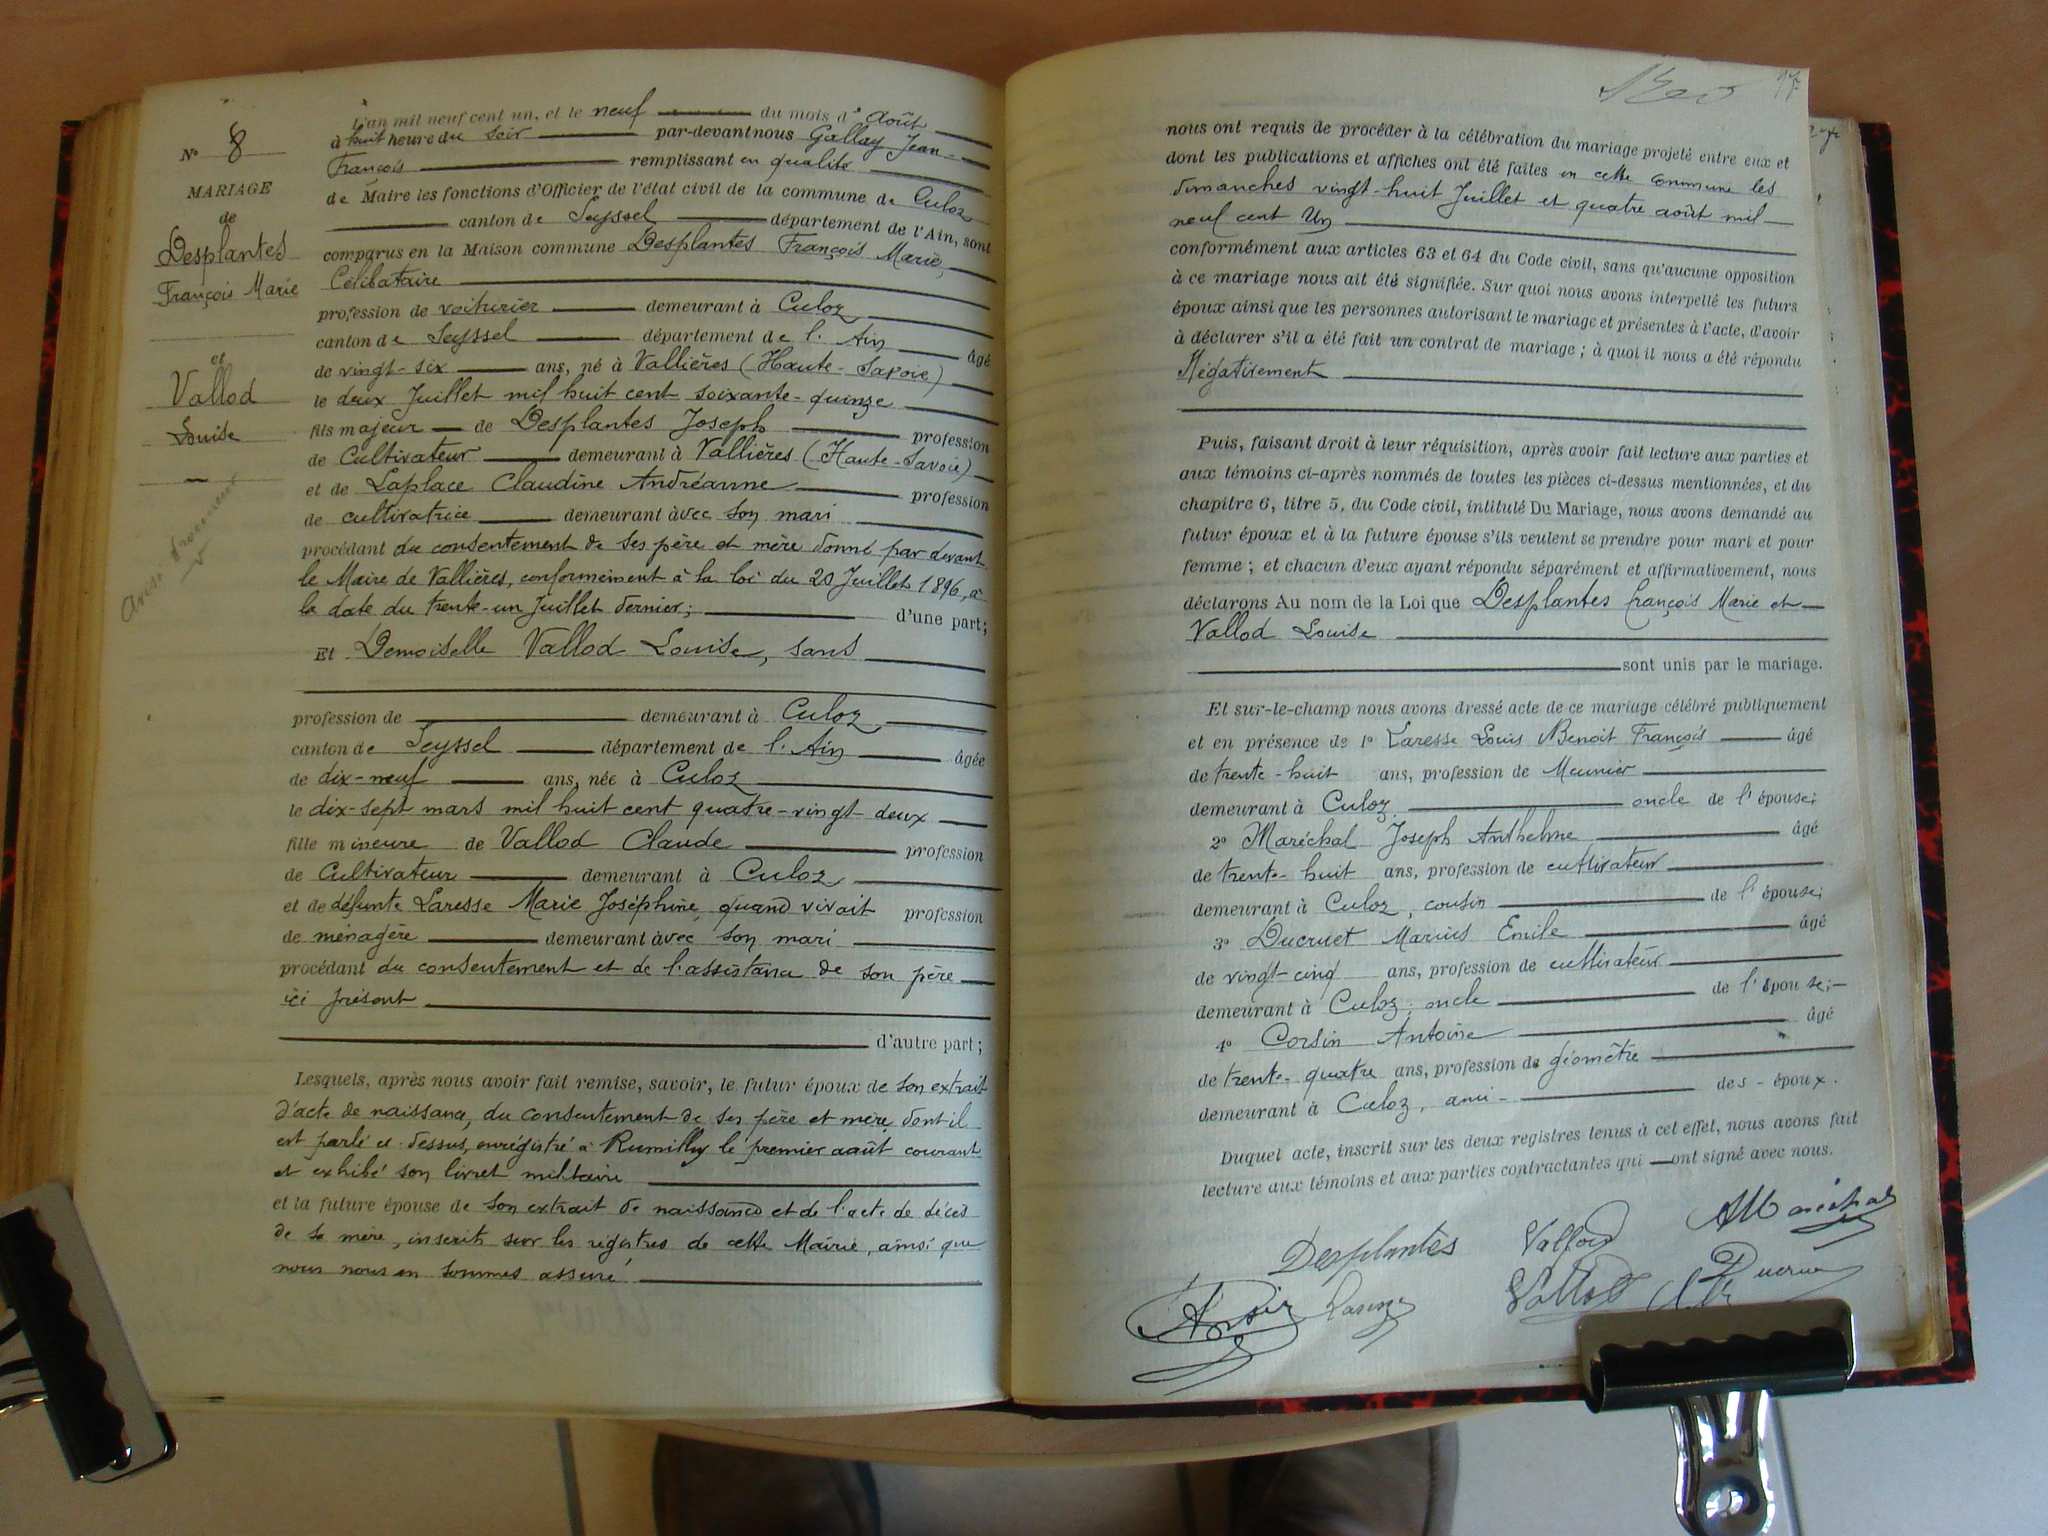 N° 8
MARIAGE
de
Desplantes
François Marie
et
Vallod
Louise
L'an mil neuf cent un, et le neuf du mois d'août
à huit heure du soir par-devant nous Gallay Jean-
François remplissant en qualité
de Maire les fonctions d'Officier de l'état civil de la commune de Culoz
canton de Seyssel département de l'Ain, sont
comparus en la Maison commune Desplantes François Marie,
Célibataire
profession de voiturier demeurant à Culoz
canton de Seyssel département de l'Ain âgé
de vingt-six ans, né à Vallières (Haute-Savoie)
le deux Juillet mil huit cent soixante-quinze
fils majeur de Desplantes Joseph profession
de Cultivateur demeurant à Vallières (Haute-Savoie)
et de Laplace Claudine Andréanne profession
de cultivatrice demeurant avec son mari
procédant du consentement de ses père et mère donné par devant
le Maire de Vallières, conformément à la loi du 20 Juillet 1896, à
la date du trente-un Juillet dernier; d'une part;
Et Demoiselle Vallod Louise, sans
profession de demeurant à Culoz
canton de Seyssel département de l'Ain âgée
de dix-neuf ans, née à Culoz
le dix-sept mars mil huit cent quatre-vingt-deux
fille mineure de Vallod Claude profession
de Cultivateur demeurant à Culoz
et de défunte Laresse Marie Joséphine, quand vivait profession
de ménagère demeurant avec son mari
procédant du consentement et de l'assistance de son père
ici présent
d'autre part;
Lesquels, après nous avoir fait remise, savoir, le futur époux de son extrait
d'acte de naissance, du consentement de ses père et mère dont il
est parlé ci-dessus, enrégistré à Rumilly le premier août courant
et exhibé son livret militaire
et la future épouse de son extrait de naissance et de l'acte de décès
de sa mère, inscrits sur les registres de cette Mairie, ainsi que
nous nous en sommes assuré
97
nous ont requis de procéder à la célébration du mariage projeté entre eux et
dont les publications et affiches ont été faites en cette commune les
dimanches vingt-huit Juillet et quatre août mil
neuf cent Un
conformément aux articles 63 et 64 du Code civil, sans qu'aucune opposition
à ce mariage nous ait été signifiée. Sur quoi nous avons interpellé les futurs
époux ainsi que les personnes autorisant le mariage et présentes à l'acte, d'avoir
à déclarer s'il a été fait un contrat de mariage; à quoi il nous a été répondu
Négativement
Puis, faisant droit à leur réquisition, après avoir fait lecture aux parties et
aux témoins ci-après nommés de toutes les pièces ci-dessus mentionnées, et du
chapitre 6, titre 5, du Code civil, intitulé Du Mariage, nous avons demandé au
futur époux et à la future épouse s'ils veulent se prendre pour mari et pour
femme; et chacun d'eux ayant répondu séparément et affirmativement, nous
déclarons Au nom de la Loi que Desplantes François Marie et
Vallod Louise
sont unis par le mariage.
Et sur-le-champ nous avons dressé acte de ce mariage célébré publiquement
et en présence de 1° Laresse Louis Benoit François âgé
de trente-huit ans, profession de Meunier
demeurant à Culoz oncle de l'épouse;
2° Maréchal Joseph Anthelme âgé
de trente-huit ans, profession de cultivateur
demeurant à Culoz, cousin de l'épouse;
3° Ducruet Marius Emile âgé
de vingt-cinq ans, profession de cultivateur
demeurant à Culoz; oncle de l'épouse;
4° Corsin Antoine âgé
de trente-quatre ans, profession de géomètre
demeurant à Culoz, ami des époux.
Duquel acte, inscrit sur les deux registres tenus à cet effet, nous avons fait
lecture aux témoins et aux parties contractantes qui ont signé avec nous.
Desplantes Vallod Maréchal
Vallod